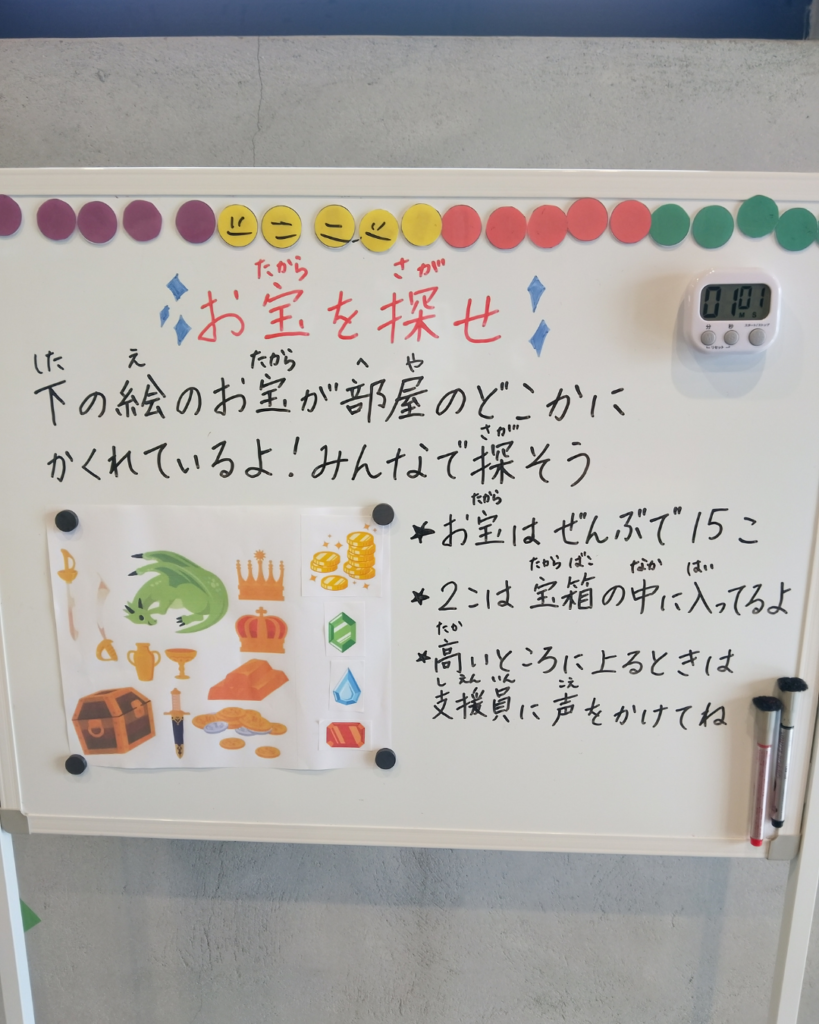 たから さが
お宝を探せ
した え たから へ や
下の絵のお宝が部屋のどこかに
さが
かくれているよ!みんなで探そう
たから
★お宝はぜんぶで15こ
たからばこ なか はい
★2こは宝箱の中に入ってるよ
たか
★高いところに上るときは
し えん いん こえ
支援員に声をかけてね
01 01
分 秒